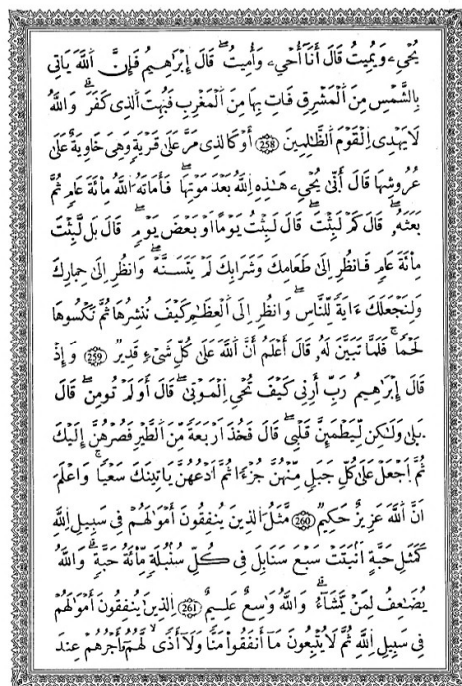 يُحْىِۦ وَيُمِيتُ قَالَ أَنَا أُحْىِۦ وَأُمِيتُۖ قَالَ إِبْرَٰهِيمُ فَإِنَّ اَللَّهَ يَاتِى
بِالشَّمْسِ مِنَ اَلْمَشْرِقِ فَاتِ بِهَا مِنَ اَلْمَغْرِبِ فَبُهِتَ اَلذِى كَفَرَۗ وَاللَّهُ
لَا يَهْدِى اِلْقَوْمَ اَلظَّٰلِمِينَ 258 أَوْ كَالذِى مَرَّ عَلَىٰ قَرْيَةٖ وَهْىَ خَاوِيَةٌ عَلَىٰ
عُرُوشِهَا قَالَ أَنَّىٰ يُحْىِۦ هَٰذِهِ اِللَّهُ بَعْدَ مَوْتِهَاۖ فَأَمَاتَهُ اُللَّهُ مِاْئَةَ عَامٖ ثُمَّ
بَعَثَهُۥۖ قَالَ كَمْ لَبِثْتَۖ قَالَ لَبِثْتُ يَوْمًا أَوْ بَعْضَ يَوْمٖۖ قَالَ بَل لَّبِثْتَ
مِاْئَةَ عَامٖ فَانظُرْ إِلَىٰ طَعَامِكَ وَشَرَابِكَ لَمْ يَتَسَنَّهْۖ وَانظُرْ إِلَىٰ حِمَارِكَ
وَلِنَجْعَلَكَ ءَايَةٗ لِّلنَّاسِۖ وَانظُرْ إِلَى اَلْعِظَٰمِ كَيْفَ نُنشِرُهَا ثُمَّ نَكْسُوهَا
لَحْمٗاۚ فَلَمَّا تَبَيَّنَ لَهُۥ قَالَ أَعْلَمُ أَنَّ اَللَّهَ عَلَىٰ كُلِّ شَىْءٖ قَدِيرٌ 259 وَإِذْ
قَالَ إِبْرَٰهِيمُ رَبِّ أَرِنِى كَيْفَ تُحْىِ اِلْمَوْتَىٰۖ قَالَ أَوَلَمْ تُومِنۖ قَالَ
بَلَىٰ وَلَٰكِن لِّيَطْمَئِنَّ قَلْبِىۖ قَالَ فَخُذْ أَرْبَعَةٗ مِّنَ اَلطَّيْرِ فَصُرْهُنَّ إِلَيْكَ
ثُمَّ اَجْعَلْ عَلَىٰ كُلِّ جَبَلٖ مِّنْهُنَّ جُزْءٗا ثُمَّ اَدْعُهُنَّ يَاتِينَكَ سَعْيٗاۚ وَاعْلَمْ
أَنَّ اَللَّهَ عَزِيزٌ حَكِيمٌ 260 مَّثَلُ اُلذِينَ يُنفِقُونَ أَمْوَٰلَهُمْ فِى سَبِيلِ اِللَّهِ
كَمَثَلِ حَبَّةٍ أَنۢبَتَتْ سَبْعَ سَنَابِلَ فِى كُلِّ سُنۢبُلَةٖ مِّاْئَةُ حَبَّةٖۗ وَاللَّهُ
يُضَٰعِفُ لِمَنْ يَّشَآءُۗ وَاللَّهُ وَٰسِعٌ عَلِيمٌ 261 اَلذِينَ يُنفِقُونَ أَمْوَٰلَهُمْ
فِى سَبِيلِ اِللَّهِ ثُمَّ لَا يُتْبِعُونَ مَا أَنفَقُواْ مَنّٗا وَلَا أَذٗىۙ لَّهُمْ أَجْرُهُمْ عِندَ